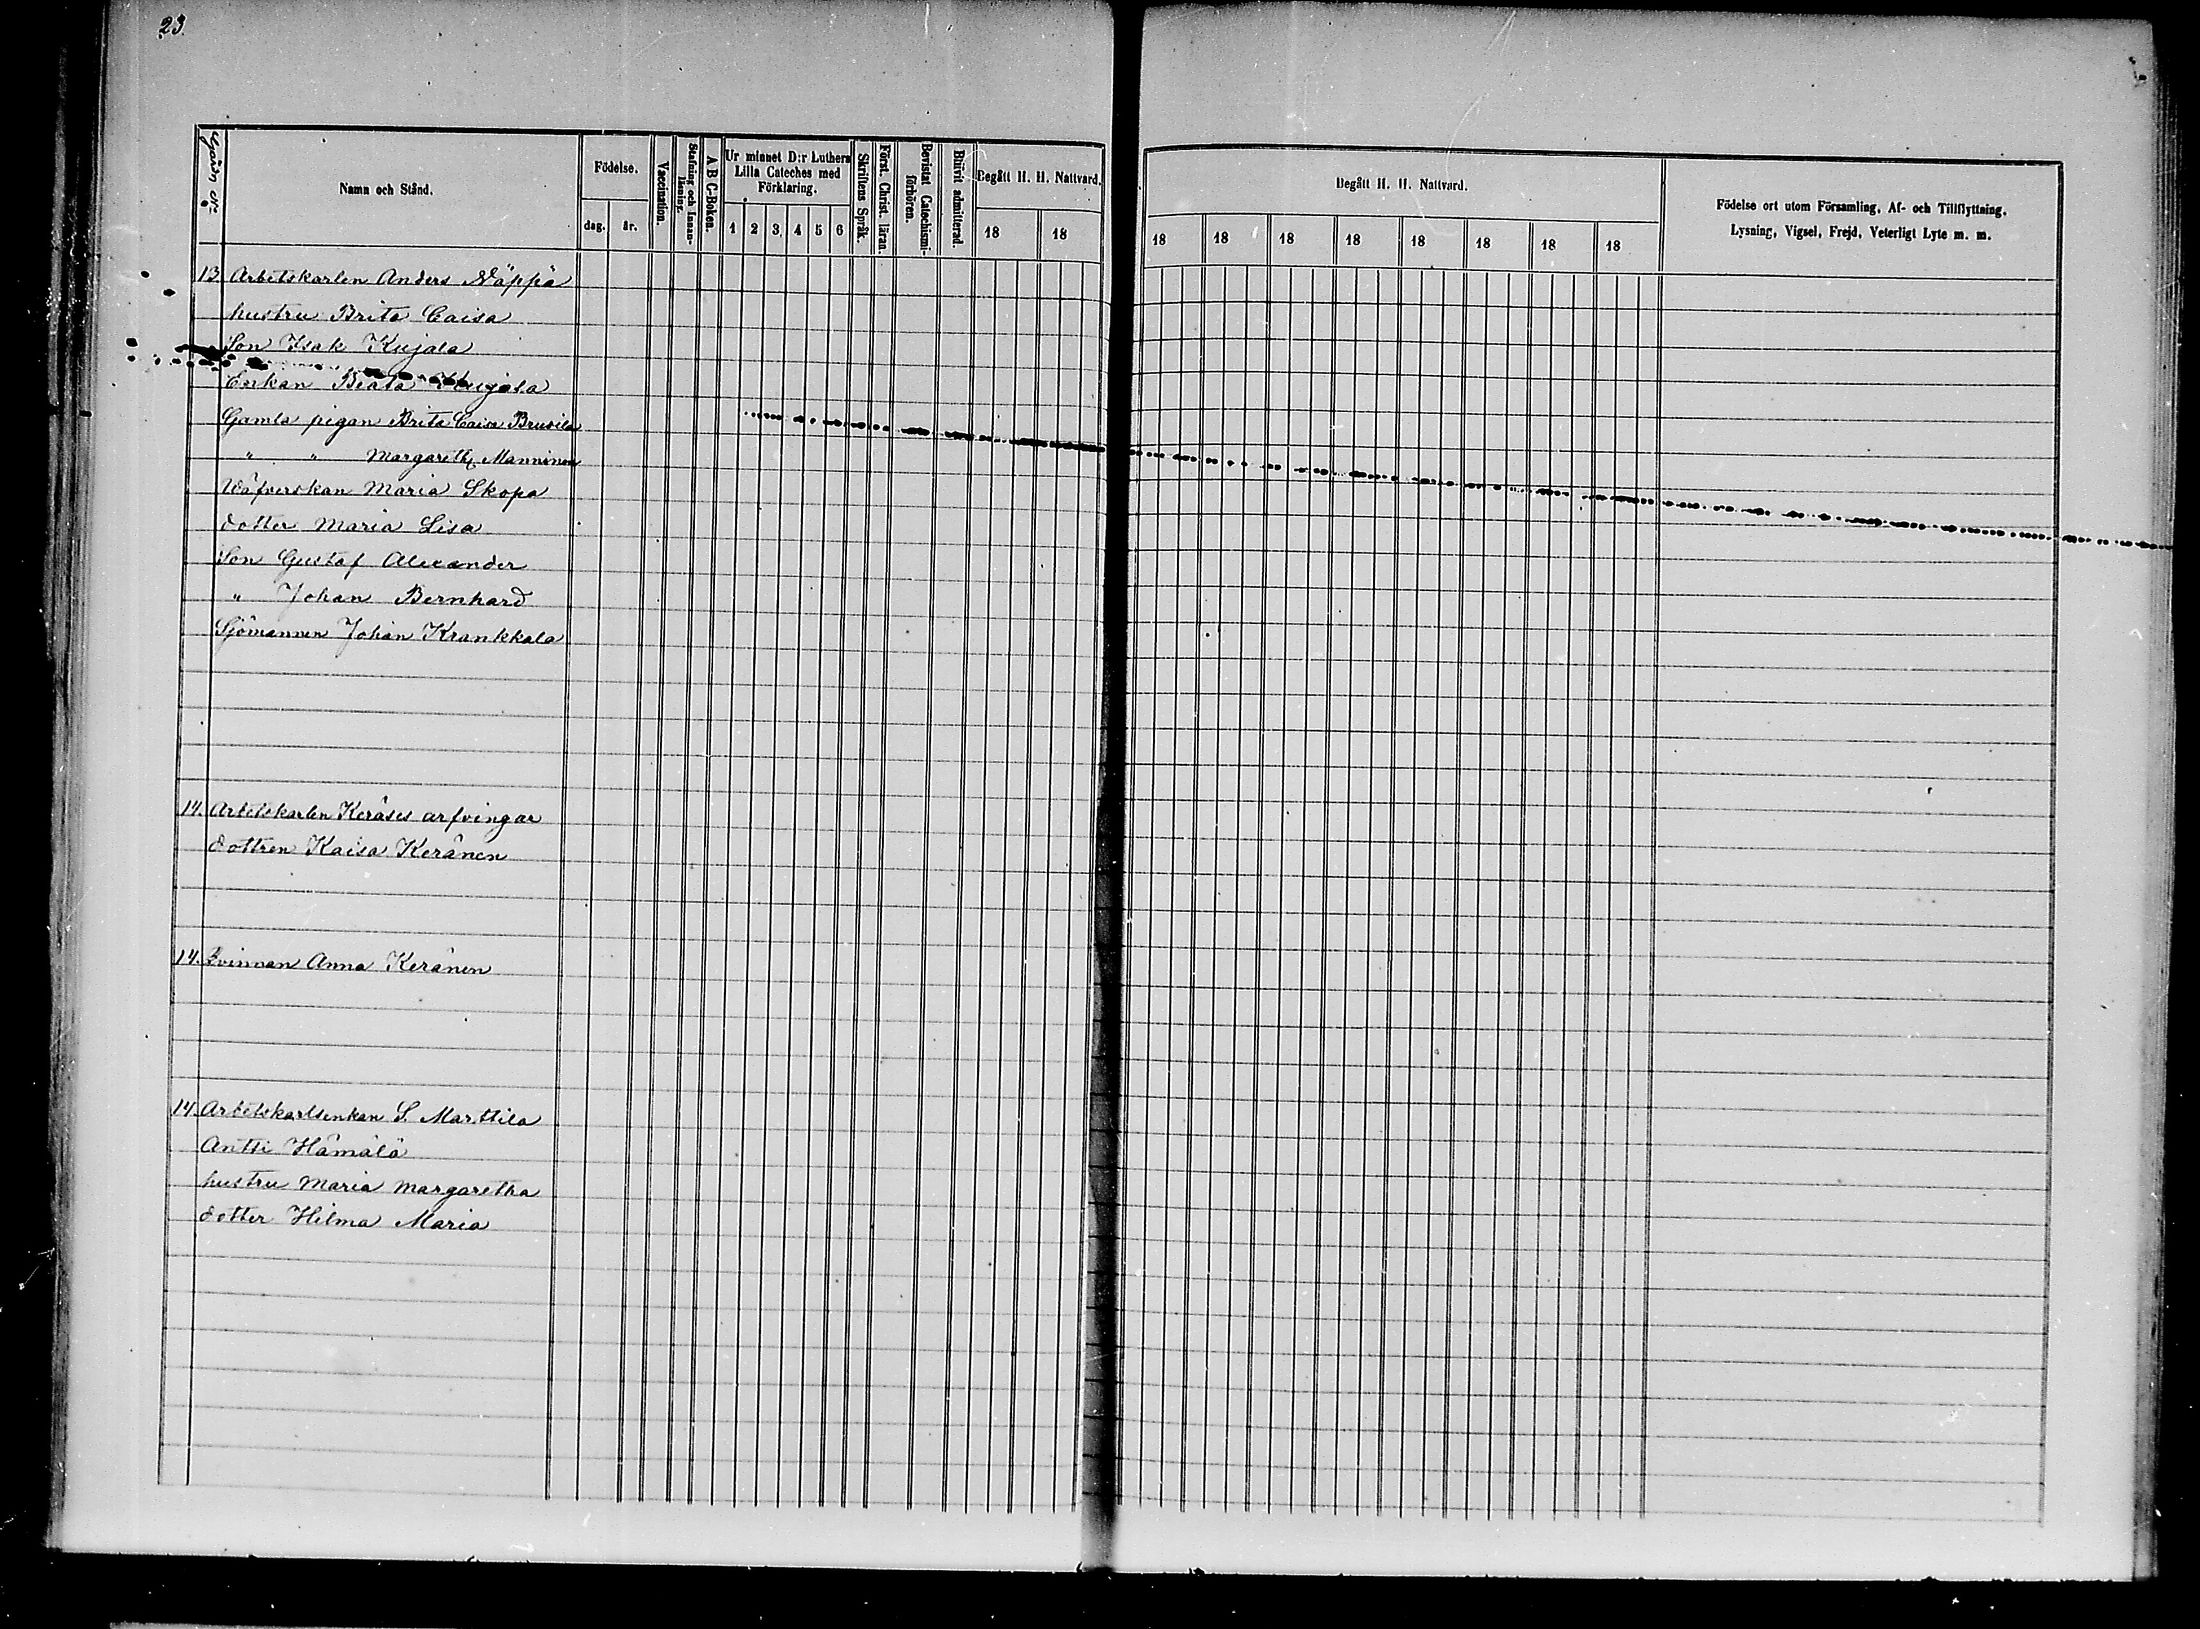 23.
Gårds No
Namn och Stånd.
Födelse.
dag.
år.
Vaccination.
Stafning och Innan-
läsning.
A B C-Boken.
Ur minnet D:r Luthers
Lilla Cateches med
Förklaring.
1 2 3 4 5 6
Skriftens Språk.
Först. Christ. läran.
Bevistat Catechismi-
förhören.
Blivit admitterad.
Begått H. H. Nattvard.
18 18
Begått H. H. Nattvard.
18 18 18 18 18 18 18 18
Födelse ort utom Församling, Af- och Tillflyttning.
Lysning, Vigsel, Frejd, Veterligt Lyte m. m.
13. Arbetskarlen Anders Näppä
hustru Brita Caisa
Son Isak Kujala
Enkan Beata Kujala
Gamla pigan Brita Caisa Brusila
" " Margareth Manninen
Wäfverskan Maria Skopa
dotter Maria Lisa
Son Gustaf Alexander
" Johan Bernhard
Sjömannen Johan Krankkala
14. Arbetskarlen Keräses arfvingar
dottren Kaisa Keränen
14. Qvinnan Anna Keränen
14. Arbetskarlsenkan S. Marttila
Antti Hämälä
hustru Maria Margaretha
dotter Hilma Maria